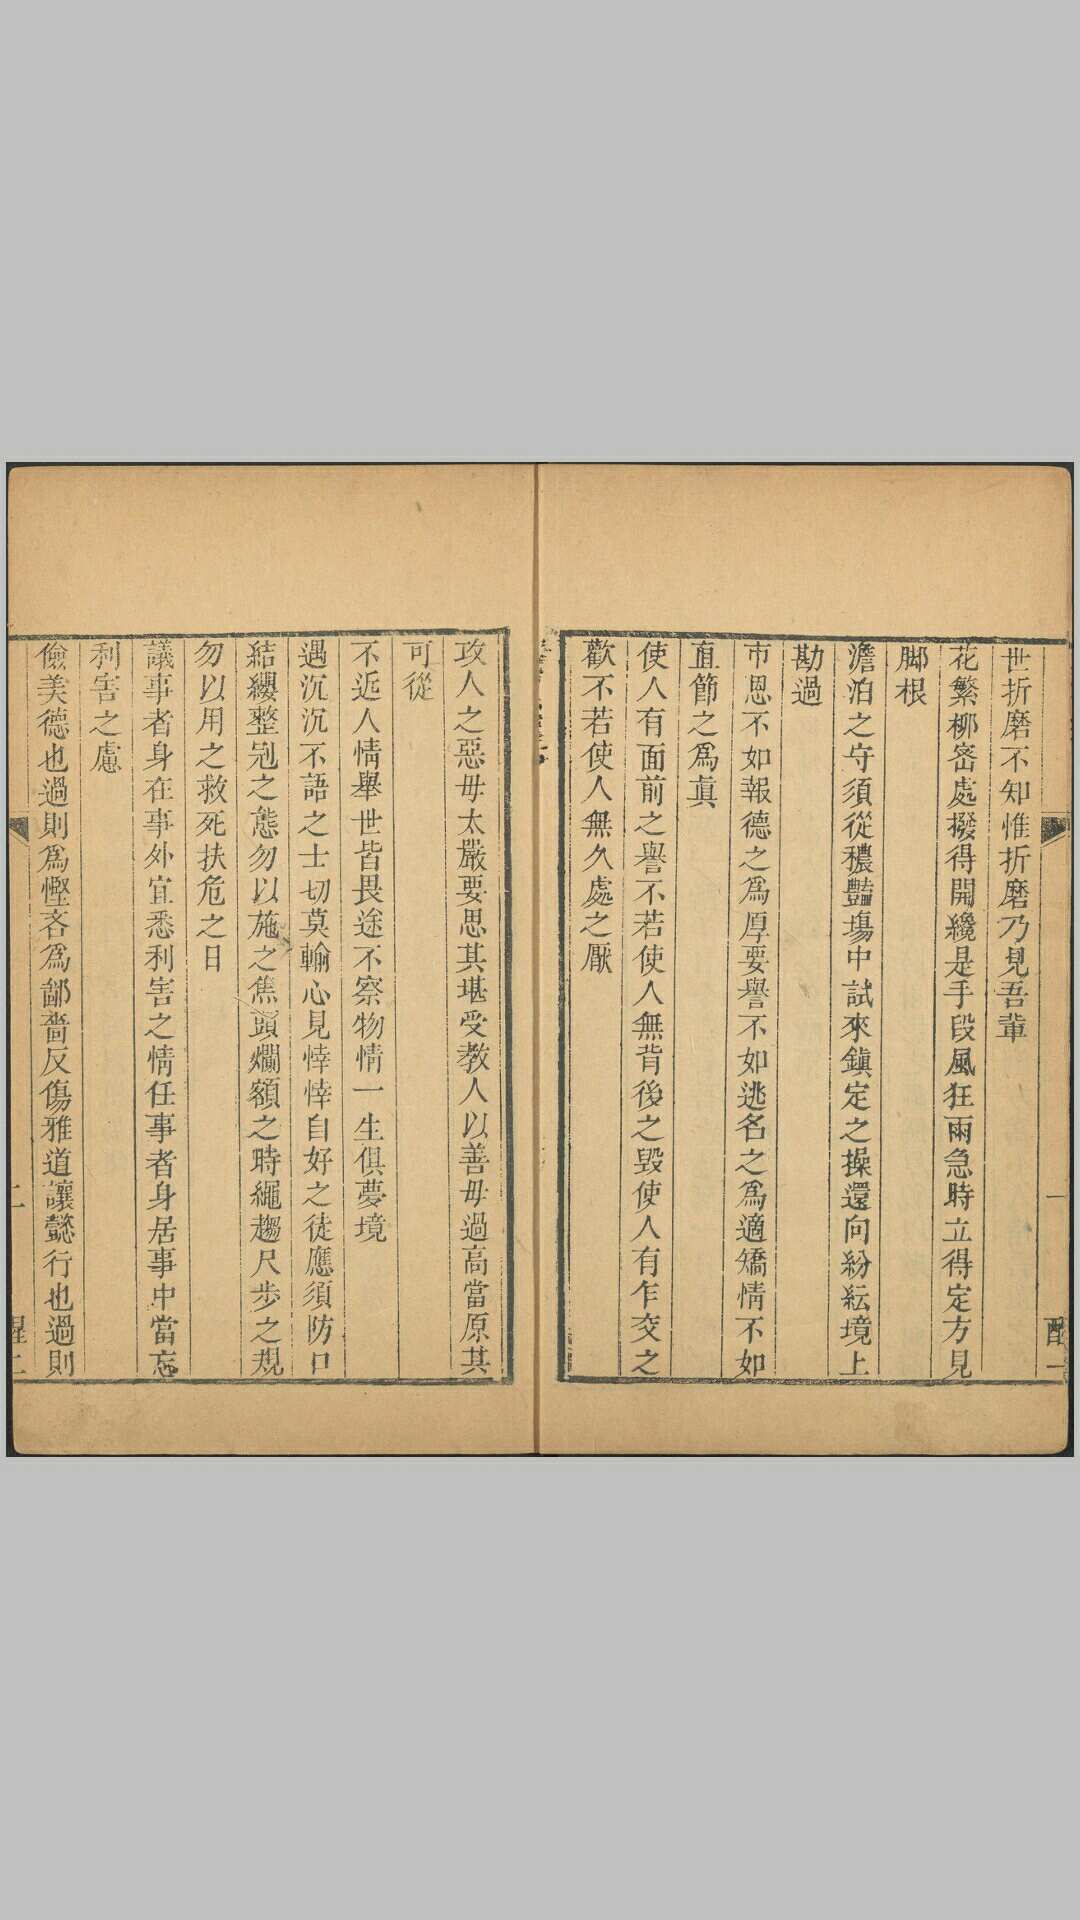 世折磨不知惟折磨乃見吾輩
花繁柳密處撥得開纔是手段風狂雨急時立得定方見
脚根
澹泊之守須從穠豔場中試來鎮定之操還向紛紜境上
勘過
市恩不如報德之爲厚要譽不如逃名之爲適矯情不如
直節之爲眞
使人有面前之譽不若使人無背後之毀使人有乍交之
歡不若使人無久處之厭
攻人之惡毋太嚴要思其堪受教人以善毋過高當原其
可從
不近人情舉世皆畏途不察物情一生俱夢境
遇沉沉不語之士切莫輸心見悻悻自好之徒應須防口
結纓整冠之態勿以施之焦頭爛額之時繩趨尺步之規
勿以用之救死扶危之日
議事者身在事外宜悉利害之情任事者身居事中當忘
利害之慮
儉美德也過則爲慳吝爲鄙嗇反傷雅道讓懿行也過則
二
醒二